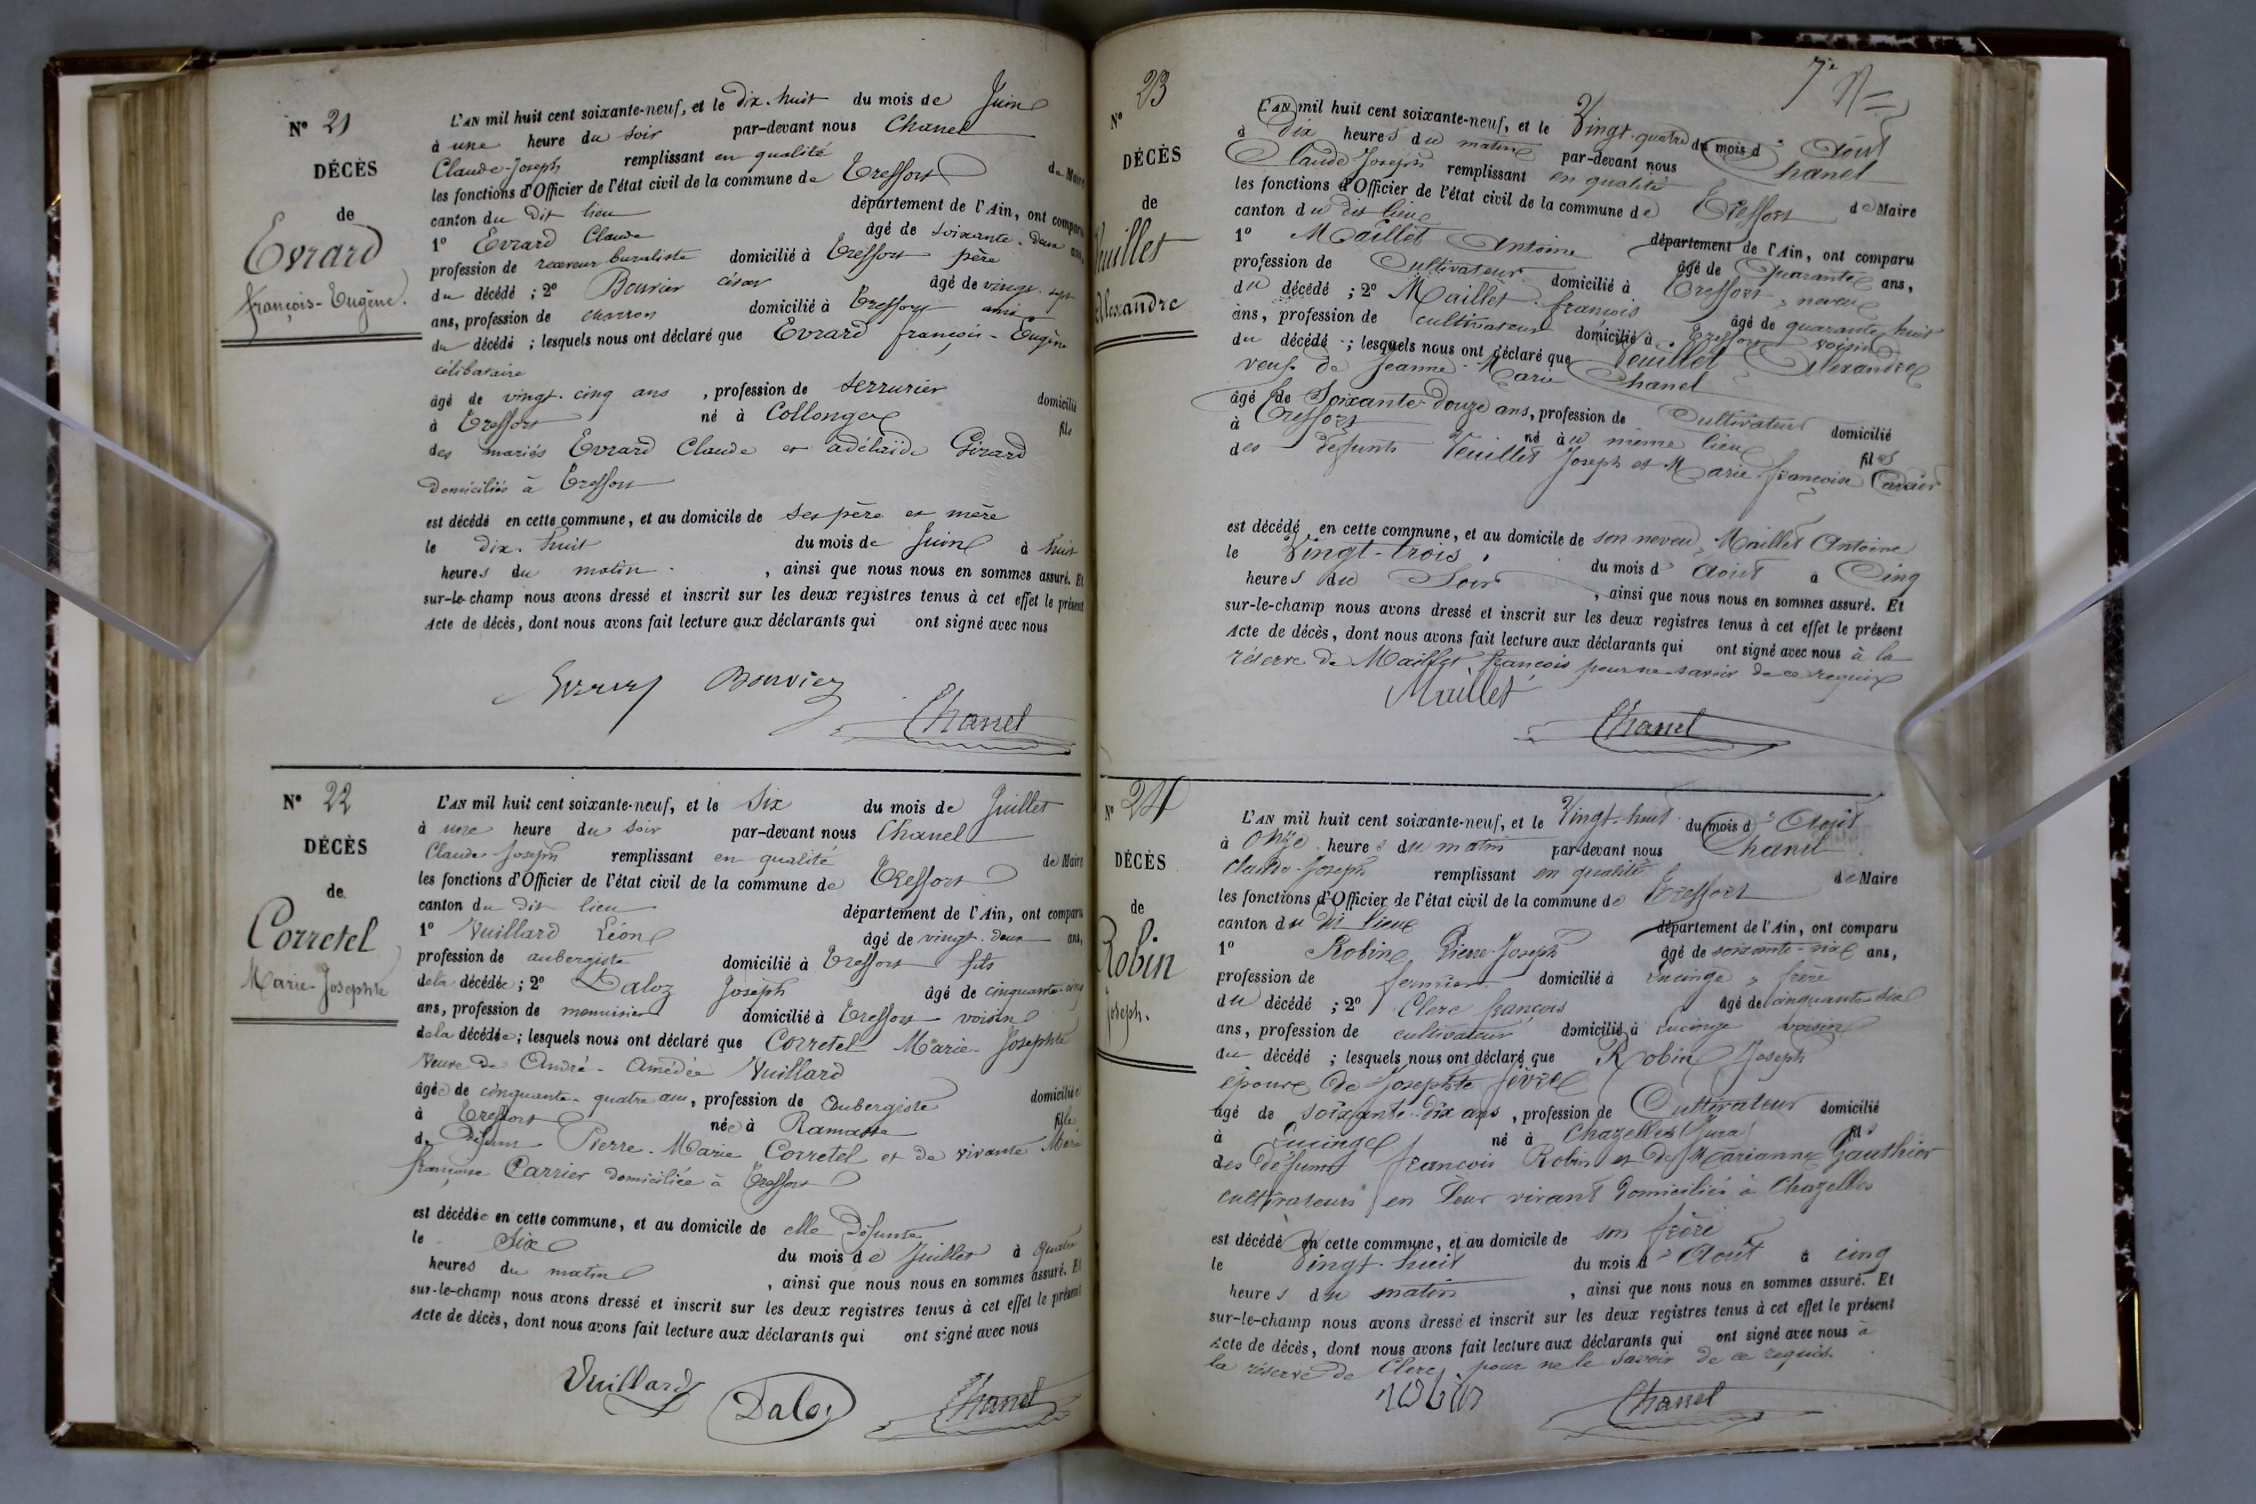 N° 21
DÉCÈS
de
Evrard
françois-Eugène.
L'AN mil huit cent soixante-neuf, et le dix-huit du mois de Juin
à une heure du soir par-devant nous Chanel
Claude-Joseph remplissant en qualité de Maire
les fonctions d'Officier de l'état civil de la commune de Treffort
canton du dit lieu département de l'Ain, ont comparu
1° Evrard Claude âgé de soixante-deux ans,
profession de receveur buraliste domicilié à Treffort père
du décédé ; 2° Bouvier césar âgé de vingt-sept
ans, profession de charron domicilié à Treffort ami
du décédé ; lesquels nous ont déclaré que Evrard françois-Eugène
célibataire
âgé de vingt-cinq ans , profession de serrurier domicilié
à Treffort né à Collonges fils
des mariés Evrard Claude et adélaïde Girard
domiciliés à Treffort
est décédé en cette commune, et au domicile de ses père et mère
le dix-huit du mois de Juin à huit
heures du matin , ainsi que nous nous en sommes assuré. Et
sur-le-champ nous avons dressé et inscrit sur les deux registres tenus à cet effet le présent
Acte de décès, dont nous avons fait lecture aux déclarants qui ont signé avec nous
Evrard Bouvier
Chanel
N° 22
DÉCÈS
de
Corretel
Marie-Josephte
L'AN mil huit cent soixante-neuf, et le six du mois de Juillet
à une heure du soir par-devant nous Chanel
Claude-Joseph remplissant en qualité de Maire
les fonctions d'Officier de l'état civil de la commune de Treffort
canton du dit lieu département de l'Ain, ont comparu
1° Vuillard Léon âgé de vingt-deux ans,
profession de aubergiste domicilié à Treffort fils
de la décédée ; 2° Daloz Joseph âgé de cinquante-cinq
ans, profession de menuisier domicilié à Treffort voisin
de la décédée ; lesquels nous ont déclaré que Corretel Marie-Josephte
veuve de André-Amédée Vuillard
âgée de cinquante-quatre ans, profession de aubergiste domiciliée
à Treffort née à Ramasse fille
de défunt Pierre-Marie Corretel et de vivante Marie
françoise Carrier domiciliée à Treffort
est décédée en cette commune, et au domicile de elle défunte
le Six du mois de Juillet à quatre
heures du matin , ainsi que nous nous en sommes assuré. Et
sur-le-champ nous avons dressé et inscrit sur les deux registres tenus à cet effet le présent
Acte de décès, dont nous avons fait lecture aux déclarants qui ont signé avec nous
Vuillard Daloz Chanel
7e
N° 23
DÉCÈS
de
Vuillet
Alexandre
L'AN mil huit cent soixante-neuf, et le Vingt-quatre du mois d'Aout
à Dix heures du matin par-devant nous Chanel
Claude Joseph remplissant en qualité de Maire
les fonctions d'Officier de l'état civil de la commune de Treffort
canton du dit lieu département de l'Ain, ont comparu
1° Maillet Antoine âgé de Quarante ans,
profession de Cultivateur domicilié à Treffort, neveu
du décédé ; 2° Maillet françois âgé de quarante huit
ans, profession de cultivateur domicilié à Treffort voisin
du décédé ; lesquels nous ont déclaré que Veuillet Alexandre
veuf de Jeanne-Marie Chanel
âgé de Soixante-douze ans, profession de Cultivateur domicilié
à Treffort né au même lieu fils
des défunts Veuillet Joseph et Marie-françoise
est décédé en cette commune, et au domicile de son neveu, Maillet Antoine
le Vingt-trois, du mois d'Aout à Cinq
heures du Soir , ainsi que nous nous en sommes assuré. Et
sur-le-champ nous avons dressé et inscrit sur les deux registres tenus à cet effet le présent
Acte de décès, dont nous avons fait lecture aux déclarants qui ont signé avec nous à la
réserve de Maillet françois pour ne savoir de ce requis
Maillet
Chanel
N° 24
DÉCÈS
de
Robin
Joseph.
L'AN mil huit cent soixante-neuf, et le Vingt-huit du mois d'Aout
à Onze heures du matin par-devant nous Chanel
Claude-Joseph remplissant en qualité de Maire
les fonctions d'Officier de l'état civil de la commune de Treffort
canton du dit lieu département de l'Ain, ont comparu
1° Robin Pierre-Joseph âgé de soixante-six ans,
profession de fermier domicilié à Lucinge, frère
du décédé ; 2° Clerc françois âgé de cinquante-six
ans, profession de cultivateur domicilié à Lucinge voisin
du décédé ; lesquels nous ont déclaré que Robin Joseph
époux de Josephte févre
âgé de soixante-dix ans , profession de Cultivateur domicilié
à Lucinge né à Chazelles (Jura) fils
des défunts francois Robin et de Marianne Gauthier
cultivateurs en leur vivant domiciliés à Chazelles
est décédé en cette commune, et au domicile de son frère
le Vingt-huit du mois d'Aout à cinq
heures du matin , ainsi que nous nous en sommes assuré. Et
sur-le-champ nous avons dressé et inscrit sur les deux registres tenus à cet effet le présent
Acte de décès, dont nous avons fait lecture aux déclarants qui ont signé avec nous à
la réserve de Clerc, pour ne le savoir de ce requis.
robin
Chanel